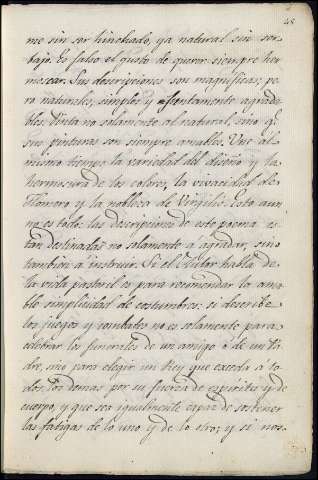 48
me sin ser hinchado, ya natural sin ser
bajo. Es falso el gusto de querer siempre her
mosear. Sus descripciones son magnificas; pe
ro naturales, simples, y agradables
bles. Pinta no solamente al natural sino q.e
sus pinturas son siempre amables. Une al
mismo tiempo la variedad del diseño y la
hermosura de los colores, la vivacidad de
Homero y la nobleza de Virgilio. Esto aun
no es todo: las descripciones de este poema es
tan destinadas no solamente a agradar, sino
tambien à instruir. Si el Autor habla de
la vida pastoril es para recomendar la ama
ble simplicidad de costumbres: si describe
los juegos y combates no es solamente para
celebrar los funerales de un amigo ò de un Pa
dre, sino para elegir un Rey que exceda a to
dos los demas por su fuerza de espiritu, y de
cuerpo, y que sea igualmente capaz de sostener
las fatigas de lo uno y de lo otro; y si nos